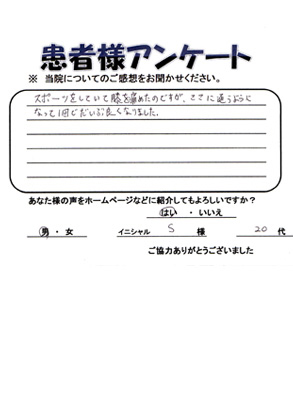 患者様アンケート
※ 当院についてのご感想をお聞かせください。
スポーツをしていて膝を痛めたのですが、ここに通うように
なって1回でだいぶ良くなりました。
あなた様の声をホームページなどに紹介してもよろしいですか？
はい ・ いいえ
男 ・ 女 イニシャル S 様 20 代
ご協力ありがとうございました